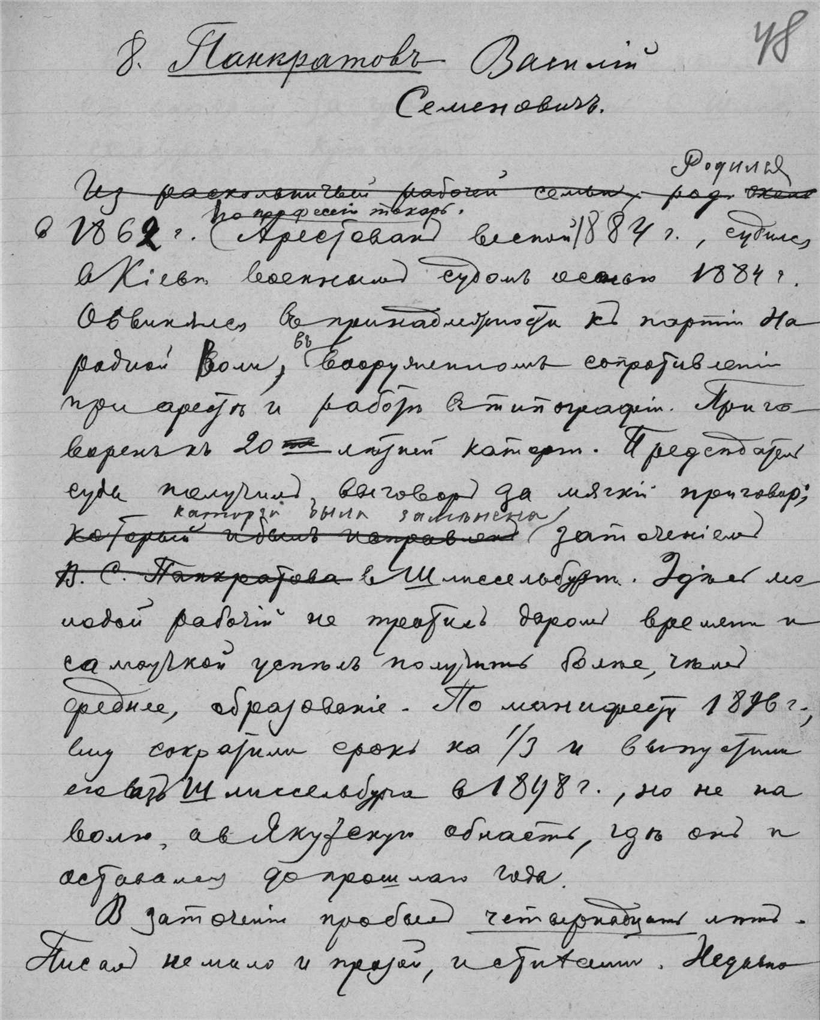 48
8. Панкратовъ Василій
Семеновичъ.
Родился
Из раскольничьей рабочей семьи, род. около
по професіи токарь.
в 1862 г. (Арестован весной 1884 г., судился
в Кіевѣ военнымъ судомъ осенью 1884 г.
Обвинялся въ принадлежности къ партіи На
родной Воли, въ вооруженномъ сопротивленіи
при арестѣ и работѣ в типографіи. Приго-
воренъ къ 20 лѣтней каторгѣ. Предсѣдатель
суда получилъ выговоръ за мягкій приговоръ;
каторга была замѣнена
который и былъ исправленъ заточеніемъ
В. С. Панкратова в Шлиссельбургѣ. Здѣсь мо
лодой рабочій не тратилъ даром времени и
самоучкой успѣлъ получить болѣе, чѣмъ
среднее, образованіе. По манифесту 1896 г.,
ему сократили срокъ на 1/3 и выпустили
его изъ Шлиссельбурга в 1898 г., но не на
волю, а в Якутскую область, гдѣ онъ и
оставался до прошлаго года.
В заточеніи пробылъ четырнадцать лѣтъ.
Писалъ не мало и прозой, и стихами. Недавно